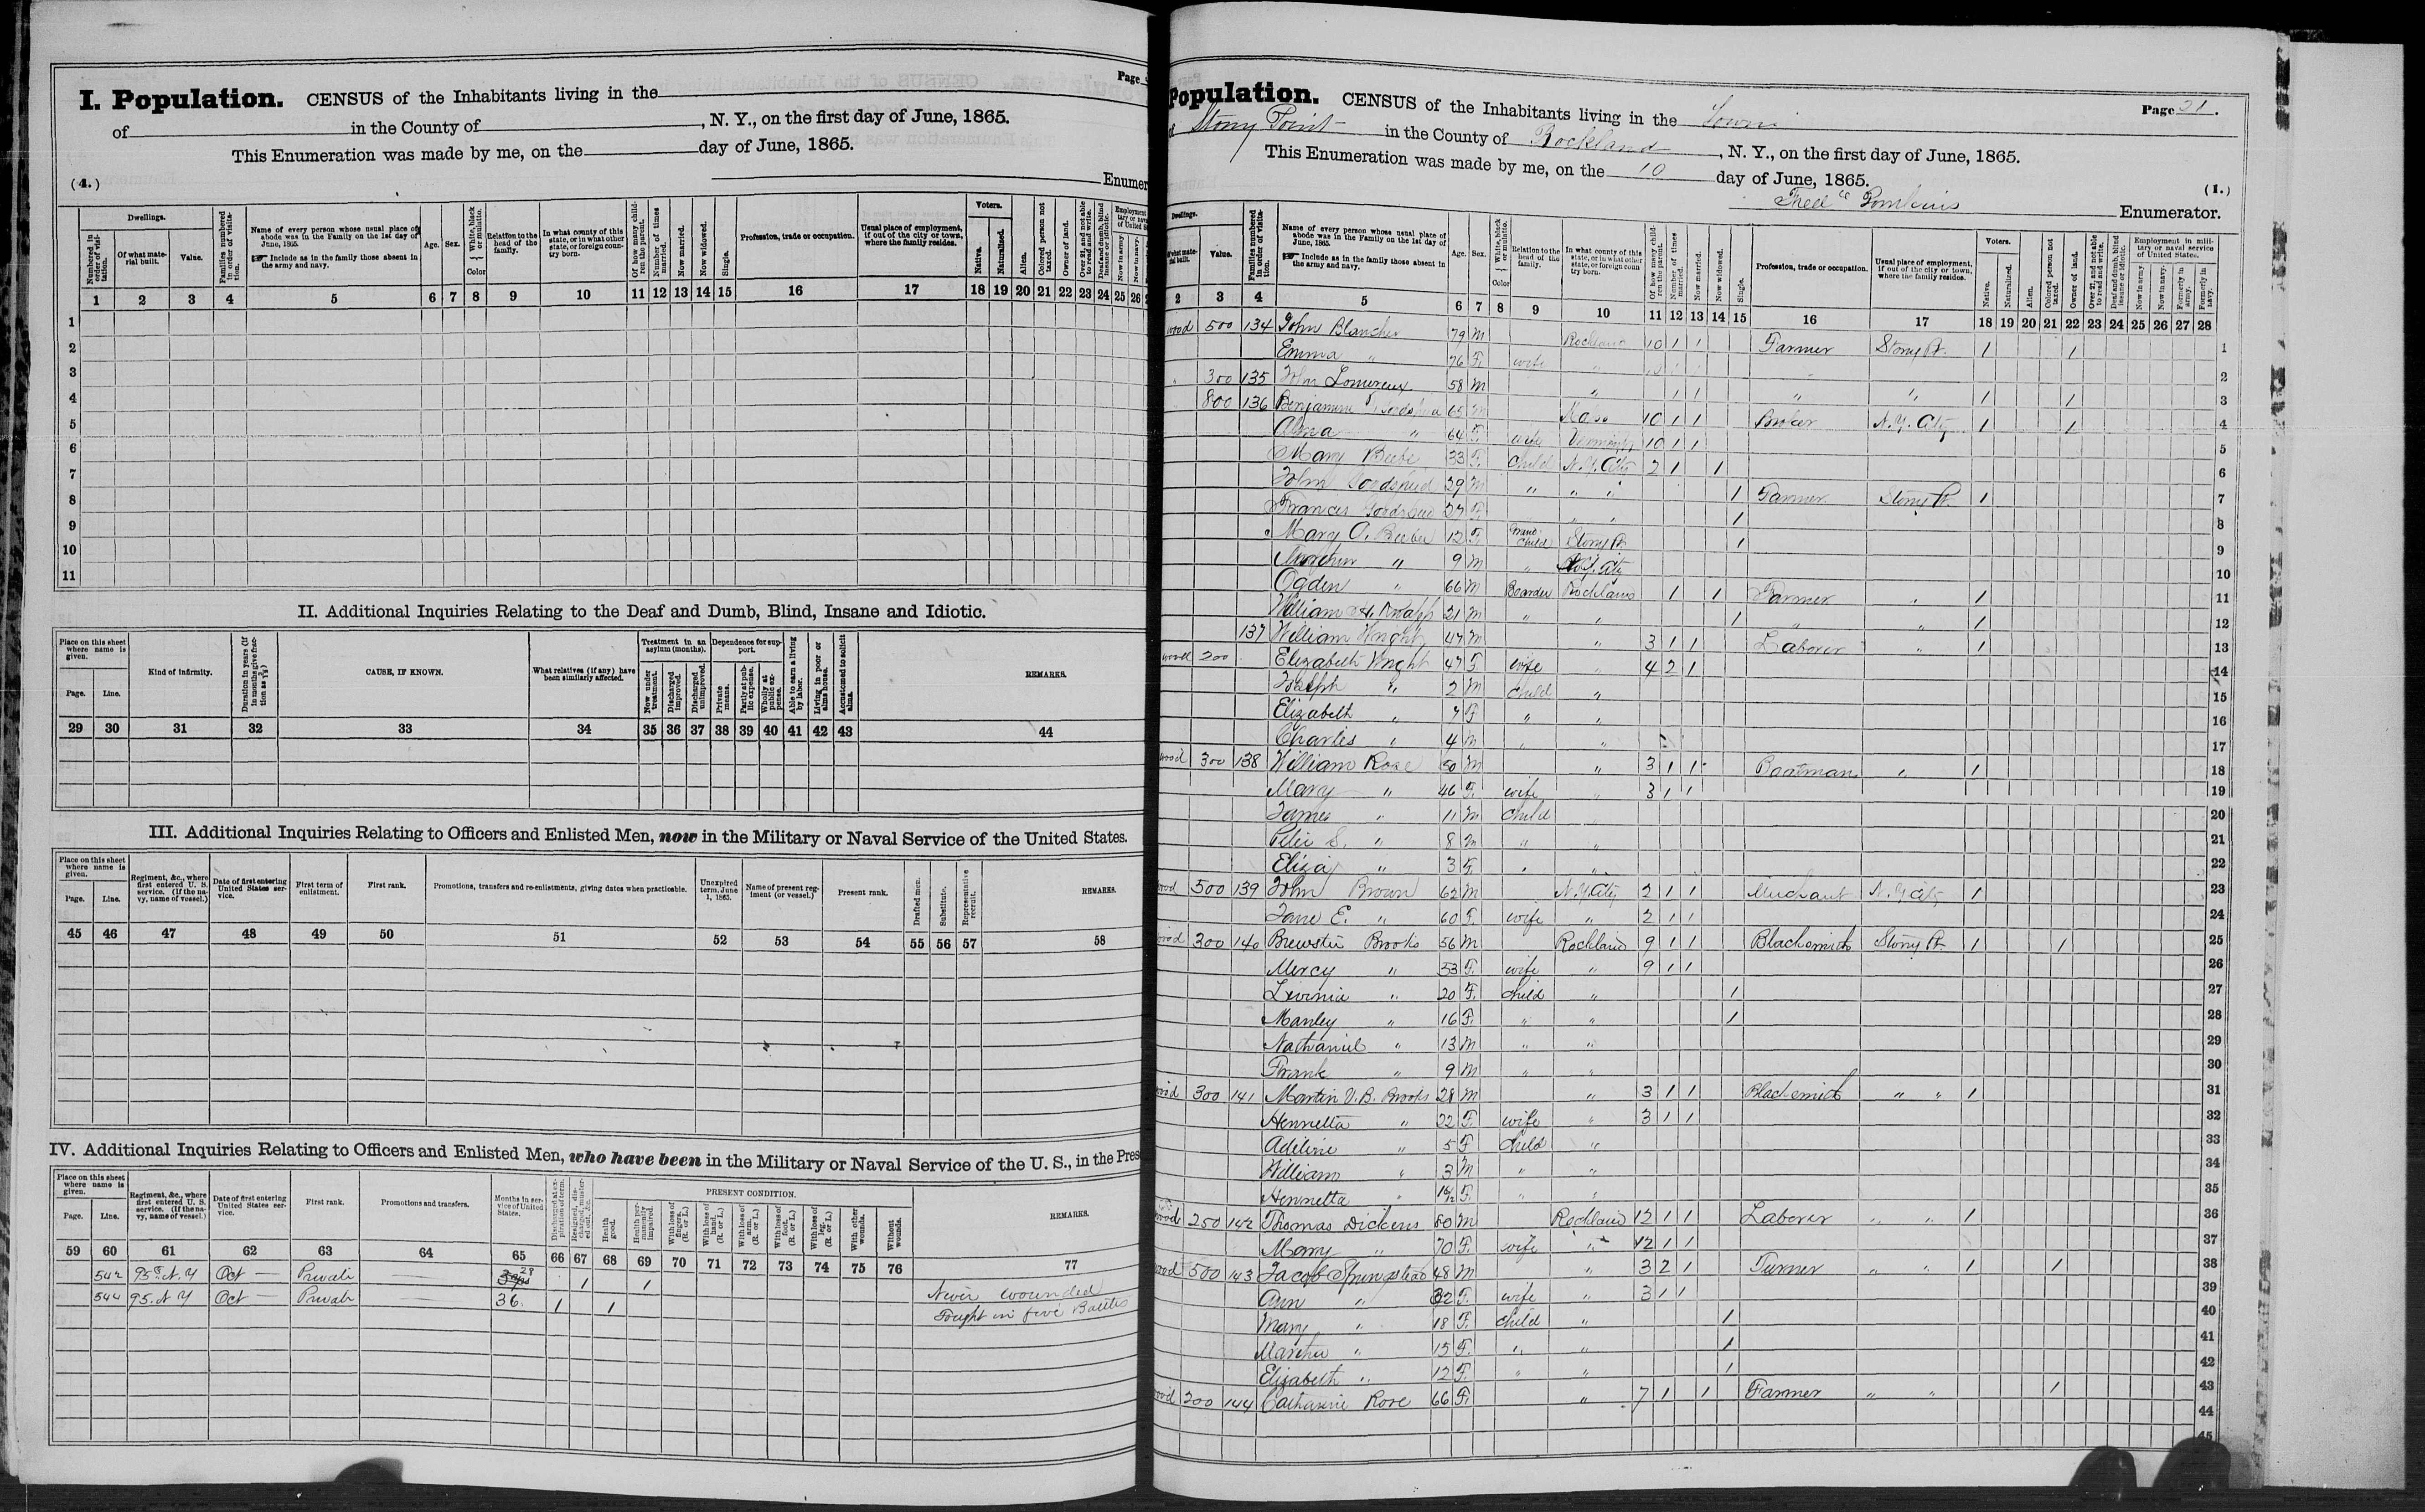 Page
I. Population. CENSUS of the Inhabitants living in the
of in the County of , N. Y., on the first day of June, 1865.
This Enumeration was made by me, on the day of June, 1865.
(4.) Enumer
Dwellings. Voters.
Numbered in order of visitation. Of what material built. Value. Families numbered in order of visitation. Name of every person whose usual place of abode was in the Family on the 1st day of June, 1865. Include as in the family those absent in the army and navy. Age. Sex. White, black or mulatto. Color Relation to the head of the family. In what county of this state, or in what other state, or foreign country born. Of how many children the parent. Number of times married. Now married. Now widowed. Single. Profession, trade or occupation. Usual place of employment, if out of the city or town, where the family resides. Native. Naturalized. Alien. Colored person not taxed. Owner of land. Over 21 and not able to read and write. Deaf and dumb, blind insane or idiotic. Now in army Now in navy.
1 2 3 4 5 6 7 8 9 10 11 12 13 14 15 16 17 18 19 20 21 22 23 24 25 26
1
2
3
4
5
6
7
8
9
10
11
II. Additional Inquiries Relating to the Deaf and Dumb, Blind, Insane and Idiotic.
Place on this sheet where name is given. Page. Line. Kind of infirmity. CAUSE, IF KNOWN. What relatives (if any) have been similarly affected. Treatment in an asylum (months). Now under treatment. Discharged improved. Discharged unimproved. Dependence for support. Private means. Partly at public expense. Wholly at public expense. Able to earn a living by labor. Living in poor or alms house. Accustomed to solicit alms. REMARKS.
29 30 31 32 33 34 35 36 37 38 39 40 41 42 43 44
III. Additional Inquiries Relating to Officers and Enlisted Men, now in the Military or Naval Service of the United States.
Place on this sheet where name is given. Page. Line. Regiment, &c., where first entered U. S. service. (If the navy, name of vessel.) Date of first entering United States service. First term of enlistment. First rank. Promotions, transfers and re-enlistments, giving dates when practicable. Unexpired term, June 1, 1865. Name of present regiment (or vessel.) Present rank. Drafted men. Substitute. Representative recruit. REMARKS.
45 46 47 48 49 50 51 52 53 54 55 56 57 58
IV. Additional Inquiries Relating to Officers and Enlisted Men, who have been in the Military or Naval Service of the U. S., in the Pres
Place on this sheet where name is given. Page. Line. Regiment, &c., where first entered U. S. service. (If the navy, name of vessel.) Date of first entering United States service. First rank. Promotions and transfers. Months in service of United States. PRESENT CONDITION. Health good. Health permanently impaired. With loss of fingers. (R. or L.) With loss of hand. (R. or L.) With loss of arm. (R. or L.) With loss of foot. (R. or L.) With loss of leg. (R. or L.) With other wounds. Without wounds. REMARKS.
59 60 61 62 63 64 65 66 67 68 69 70 71 72 73 74 75 76 77
542 95 N.Y Oct Private 29 1 1 Never wounded
544 95. N Y Oct Private 36 1 1 Fought in five Battles
Population. CENSUS of the Inhabitants living in the Town Page 21.
Stony Point in the County of Rockland, N. Y., on the first day of June, 1865.
This Enumeration was made by me, on the 10 day of June, 1865.
Tompkins Enumerator.
(1.)
Dwellings. Value. Families numbered in order of visitation. Name of every person whose usual place of abode was in the Family on the 1st day of June, 1865. Include as in the family those absent in the army and navy. Age. Sex. White, black or mulatto. Color Relation to the head of the family. In what county of this state, or in what other state, or foreign country born. Of how many children the parent. Number of times married. Now married. Now widowed. Single. Profession, trade or occupation. Usual place of employment, if out of the city or town, where the family resides. Voters. Native. Naturalized. Alien. Colored person not taxed. Owner of land. Over 21, and not able to read and write. Deaf and dumb, blind insane or idiotic. Employment in military or naval service of United States. Now in army. Now in navy. Formerly in army. Formerly in navy.
2 3 4 5 6 7 8 9 10 11 12 13 14 15 16 17 18 19 20 21 22 23 24 25 26 27 28
wood 500 134 John Blancher 79 M Rockland 10 1 1 Farmer Stony Pt. 1 1 1
Emma " 76 F. wife " 2
" 300 135 John 58 M " 1 1 " " 1 1 3
800 136 Benjamin 65 M Mass 10 1 1 Broker N.Y. City 1 1 4
64 F. wife 10 1 1 5
Mary Beebe 33 F. child N.Y. City 2 1 1 6
John Goodspeed 29 M " " " 1 Farmer Stony Pt. 1 7
Frances 27 F " " 1 8
Mary 12 F Grand child Stony Pt 1 9
" 9 M " N.Y. City 10
Ogden " 66 M Boarder Rockland 1 1 Farmer " 1 11
William H. Knapp 21 M " " 1 " " 1 12
137 William Wright 47 M " 3 1 1 Laborer " 1 13
wood 200 Elizabeth Wright 47 F. wife " 4 2 1 14
Joseph " 2 M child " 15
Elizabeth " 7 F " " 16
Charles " 4 M " " 17
wood 300 138 William Rose 50 M " 3 1 1 Boatman " 1 18
Mary " 46 F. wife " 3 1 1 19
James " 11 M child 20
S. " 8 M " " 21
Eliza " 3 F. " " 22
wood 500 139 John Brown 62 M N.Y. City 2 1 1 Merchant N.Y City 1 23
Jane E. " 60 F. wife " 2 1 1 24
wood 300 140 Brewster Brooks 56 M Rockland 9 1 1 Blacksmith Stony Pt. 1 1 25
Mercy " 53 F. wife " 9 1 1 26
Levinia " 20 F. child " 1 27
Manley " 16 F. " " 1 28
Nathaniel " 13 M " " 29
Frank " 9 M " " 30
wood 300 141 Martin V.B. Brooks 28 M " 3 1 1 Blacksmith " " 1 31
Henrietta " 22 F. wife " 3 1 1 32
Adeline " 5 F child " 33
William " 3 M " " 34
Henrietta " F. " " 35
wood 250 142 Thomas Dickens 80 M Rockland 12 1 1 Laborer " " 1 36
Mary " 70 F. wife " 12 1 1 37
wood 500 143 Jacob Springstead 48 M " 3 2 1 Turner " " 1 1 38
Ann " 32 F. wife " 3 1 1 39
Mary " 18 F. child " 1 40
Martha " 15 F. " " 1 41
Elizabeth " 12 F. " " 1 42
wood 200 144 Catharine Rose 66 F. " 7 1 1 Farmer " " 1 43
44
45